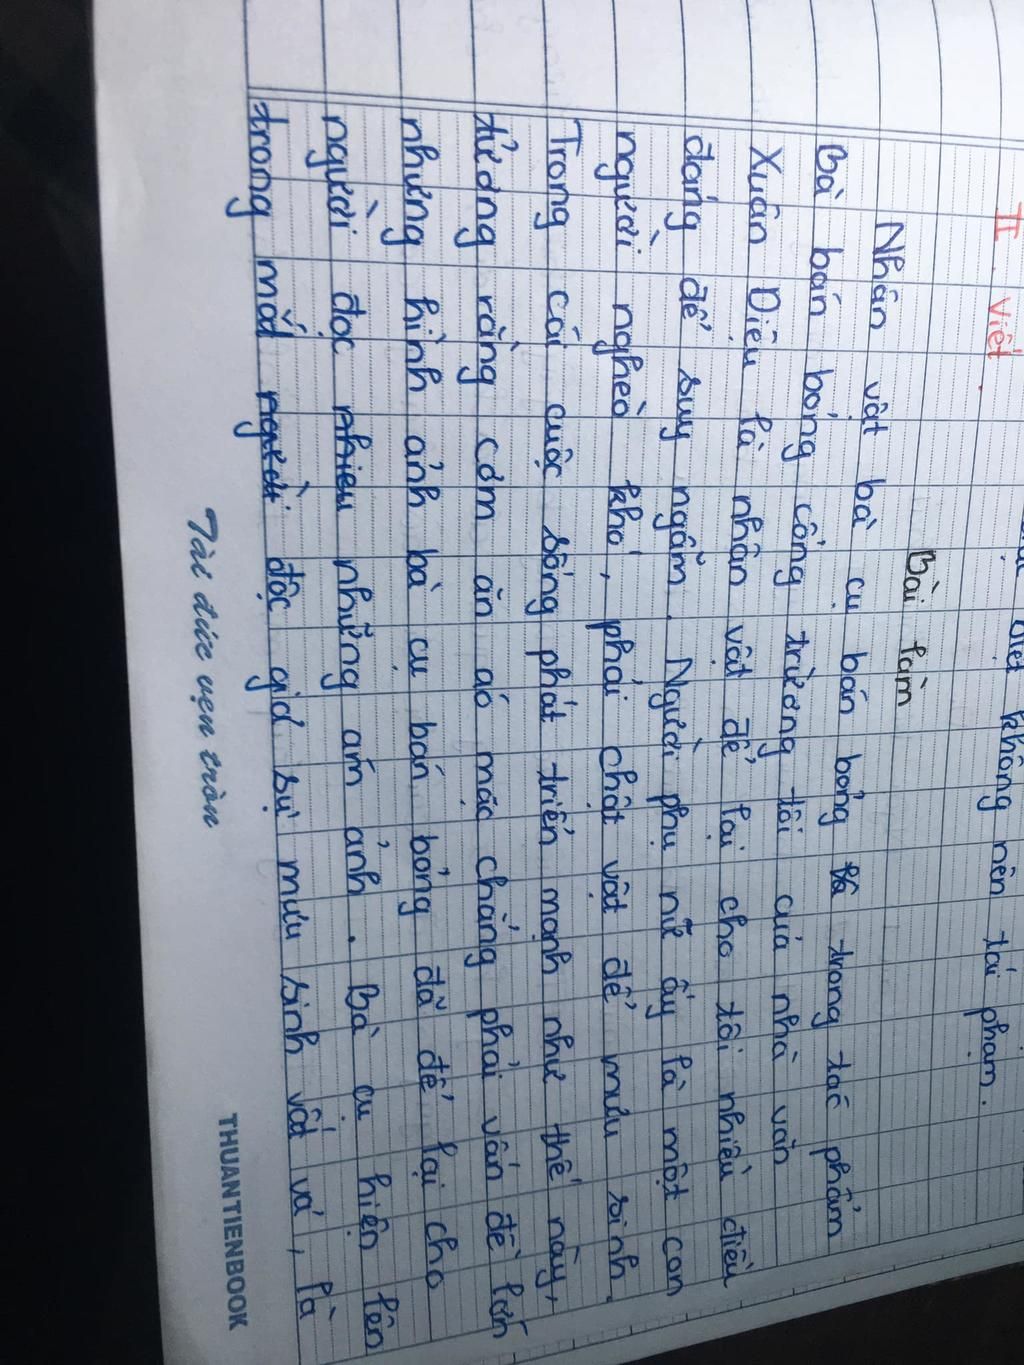 không nên tái phạm.
II. Viết.
Bài làm
Nhân vật bà cụ bán bỏng trong tác phẩm
Bà bán bỏng cổng trường tôi của nhà văn
Xuân Diệu là nhân vật để lại cho tôi nhiều điều
đáng để suy ngẫm. Người phụ nữ ấy là một con
người nghèo khó, phải chật vật để mưu sinh.
Trong cái cuộc sống phát triển mạnh như thế này,
tưởng rằng cơm ăn áo mặc chẳng phải vấn đề lớn
nhưng hình ảnh bà cụ bán bỏng đã để lại cho
người đọc nhiều những ám ảnh. Bà cụ hiện lên
trong mắt người độc giả sự mưu sinh vất vả, là
Tài đức vẹn tròn
THUANTIENBOOK